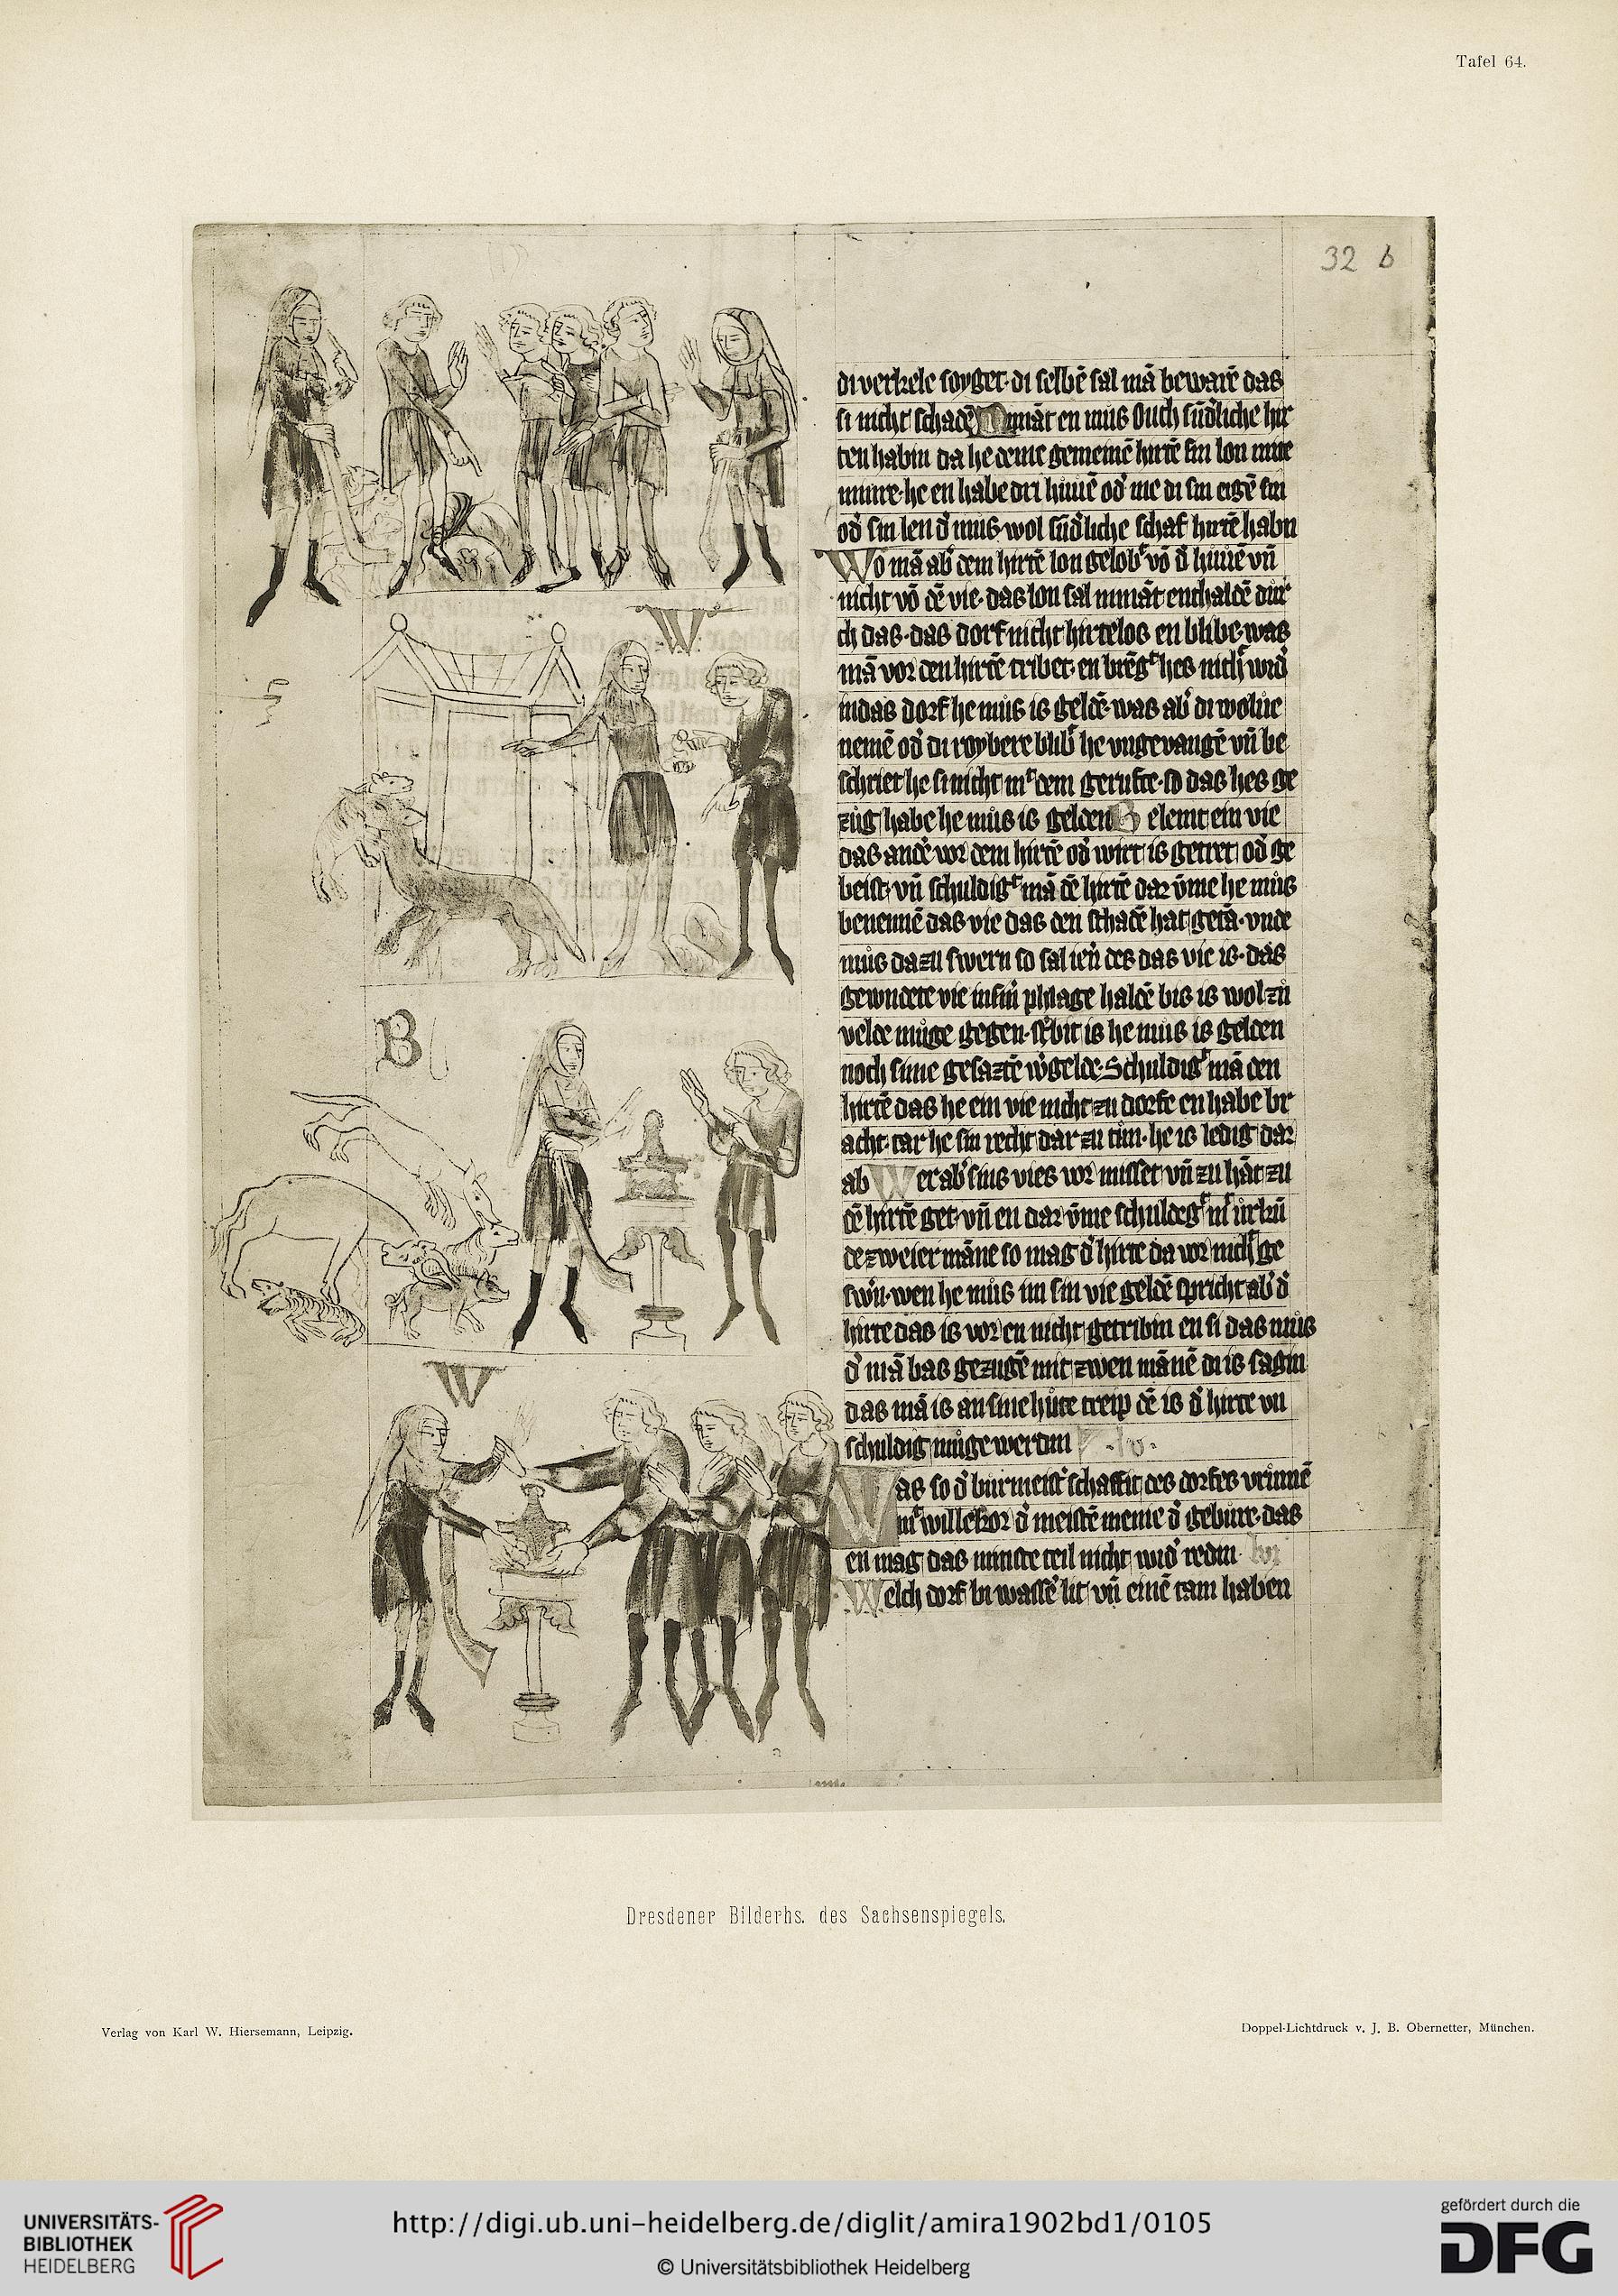 Tafel 64.
32 b
W
B
W
di verkele soyget· di selbē sal mā bewarē das
si nicht schadē Nimāt en mus ouch sūdˀliche hir
ten habin da he deme gemeinē hirtē sin lon mite
he en habe dri huuē odˀ me di sin eigē sin
odˀ sin len dˀ mus wol sūdˀliche schaf hirtē habn
Wo mā abˀ dem hirtē lon gelobˀt vō dˀ huuē vn̄
nicht vō dē vie· das lon sal nimāt enthaldē dur
ch das· das dorf nicht hirtelos en blibe· was
mā vor den hirtē tribet· en brēgˀt hes nichˀt widˀ
in das dorf he mus is geldē· was abˀ di wolue
nemē odˀ di roybere blibˀt he vngevangē vn̄ be
schriet he si nicht mˀt dem gerufte· so das hes ge
zug habe he mus is gelden Belemt ein vie
das andˀe vor dem hirtē odˀ wirt is getret odˀ ge
beist· vn̄ schuldigˀt mā dē hirtē dar v̄me he mus
benennē das vie das den schadē hat getā· vnde
mus dazu swern so sal ien̄ des das vie is· das
gewndete vie in sin̄ phlage haldē bis is wol zu
velde muge gegen· stˀbit is he mus is gelden
noch sime gesaztē wˀgelde· Schuldigˀt mā den
hirtē das he ein vie nicht zu dorfe en habe br
acht· tar he sin recht dar zu tun· he is ledig dar
ab Wer abˀ sins vies vor misset vn̄ zu hāt zu
dē hirtē get· vn̄ en dar v̄me schuldegˀt mˀt urkū
de zweier māne so mag dˀ hirte da vor nichˀt ge
swˀn· wen he mus im sin vie geldē spricht abˀ dˀ
hirte das is vor en nicht getribin en si das mus
dˀ mā bas gezugē mit zwen mānē di is sagin
das mā is an sine hute treip dē is dˀ hirte vn
schuldig muge werdin
Was so dˀ burmeistˀ schaffit des dorfes vrūmē
mˀt willekor dˀ meistē menie dˀ gebure· das
en mag das minste teil nicht widˀ redin
Welch dorf bi wassˀe lit vn̄ einē tam haben
Dresdener Bilderhs. des Sachsenspiegels.
Verlag von Karl W. Hiersemann, Leipzig.
Doppel-Lichtdruck v. J. B. Obernetter, München.
UNIVERSITÄTS-
BIBLIOTHEK
HEIDELBERG
http://digi.ub.uni-heidelberg.de/diglit/amira1902bd1/0105
© Universitätsbibliothek Heidelberg
gefördert durch die
DFG